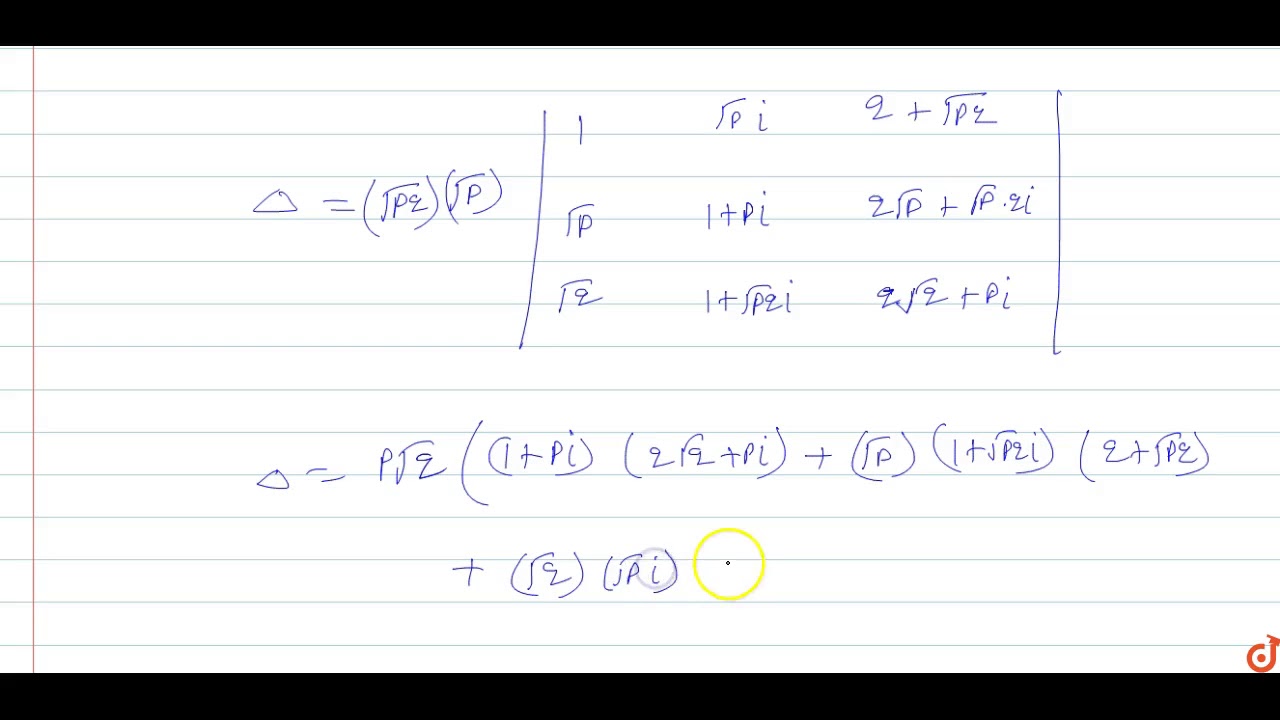 1 √p i q + √pq
Δ = (√pq)(√p) √p 1+pi q√p + √p·qi
√q 1+√pqi q√q + pi
Δ = p√q ( (1+pi) (q√q+pi) + (√p) (1+√pqi) (q+√pq)
+ (√q) (√pi)